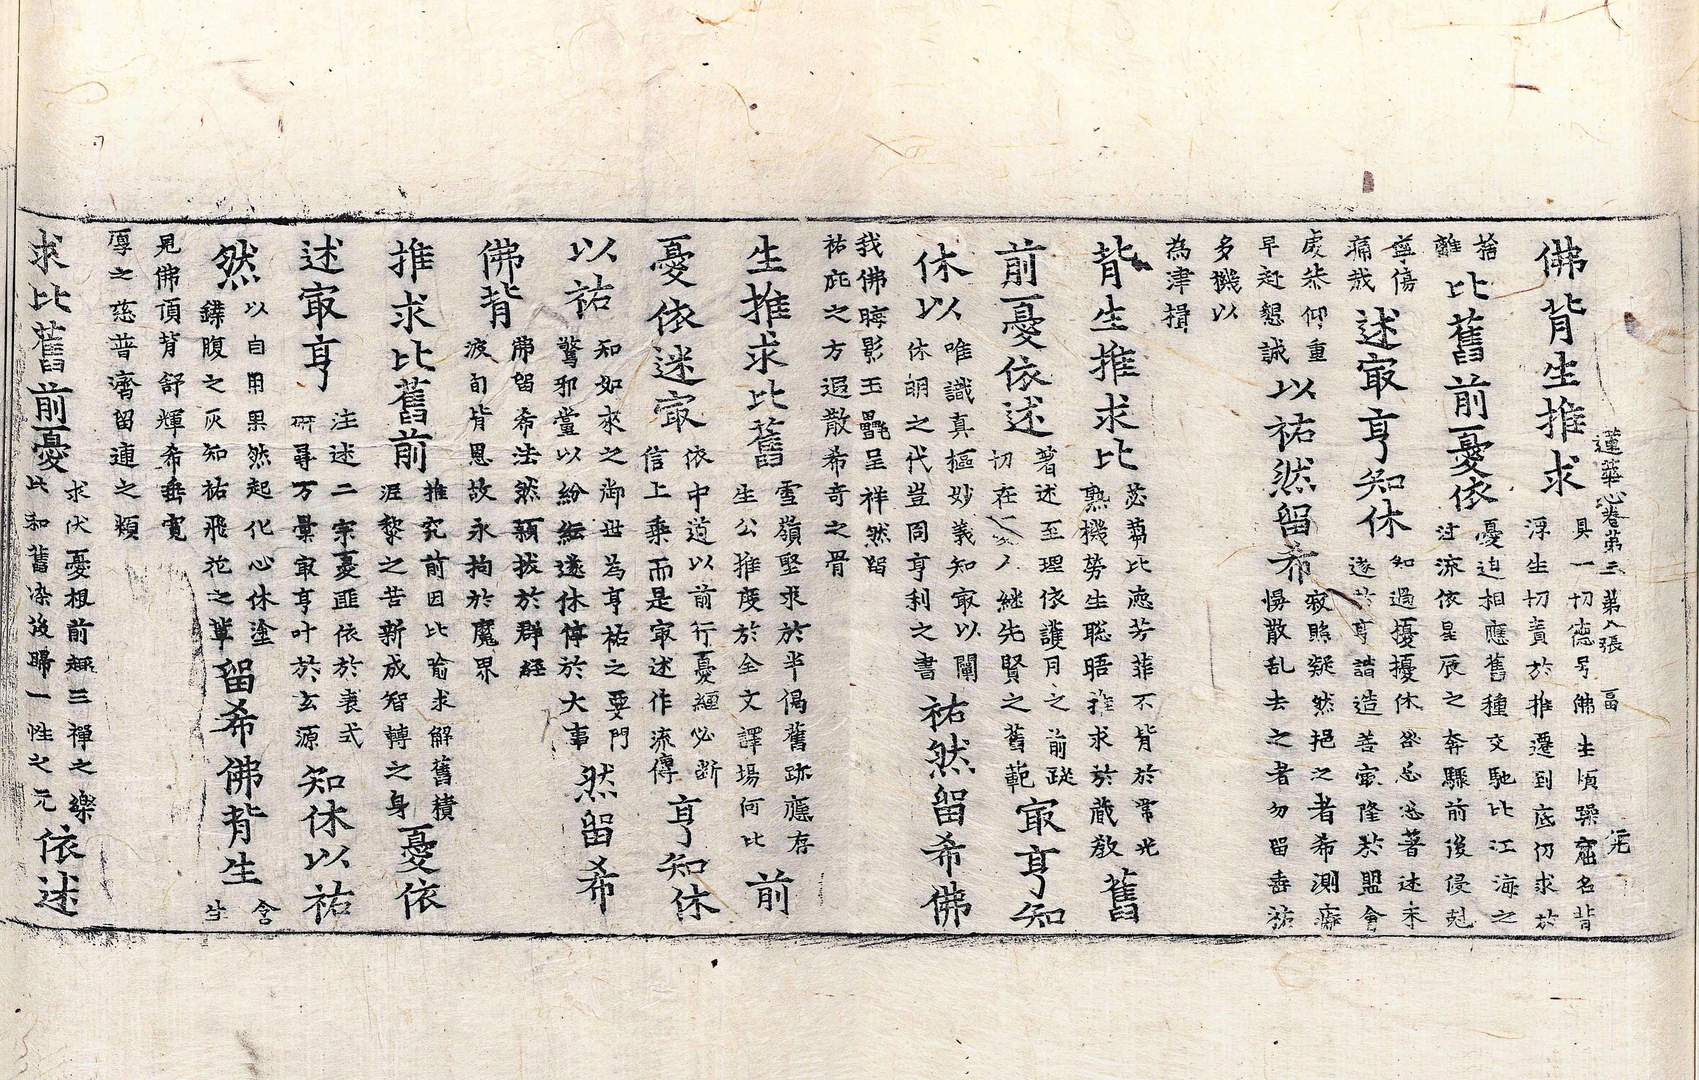 蓮華心卷第三 第八張 畐
佛背生推求
具一切德号佛生頃躁窟名背
浮生切責於推遷到底仍求於
捨
離
比舊前憂依
憂迫相應舊種交馳比江海之
过流依星辰之奔驟前後侵剋
寧傷
痛哉
述㝡亨知休
知過擾擾休咎忘忘著述未
遂於亨諧造善㝡隆於盟會
虔恭仰重
早起懇誠
以祐然留希
寂照凝然挹之者希測癈
惕散乱去之者勿留垂祐
多機以
為津揖
背生推求比
苾蒭比德芳菲不背於常光
熟機勞生聡晤推求於蔵教
舊
前憂依述
著述至理依護月之前蹤
切在人継先賢之舊範
㝡亨知
休以
唯識真樞妙義知㝡以闡
休明之代豈同亨利之書
祐然留希佛
我佛晦影玉呈祥然留
祐庇之方遐散希奇之骨
生推求比舊
雪嶺堅求於半偈舊跡應存
生公推度於全文譯場何比
前
憂依述㝡
依中道以前行憂纏必断
信上乗而是㝡述作流傳
亨知休
以祐
知如來之御世為亨祐之要門
驚邪黨以紛紜遂休停於大事
然留希
佛背
佛留希法然穎拔於群經
波旬背恩故永拘於魔界
推求比舊前
推究前因比喻求解舊積
涯黎之苦新成智轉之身
憂依
述㝡亨
注述二宗憂匪依於裹式
研尋万彙㝡亨叶於玄源
知休以祐
然
以自用果然起化心休塗
鍱腹之灰知祐飛花之輩
留希佛背生
含
生
見佛頂背舒輝希垂寬
厚之慈普濟留連之類
求比舊前憂
求伏憂根前趣三禪之樂
比和舊染後歸一性之元
依述